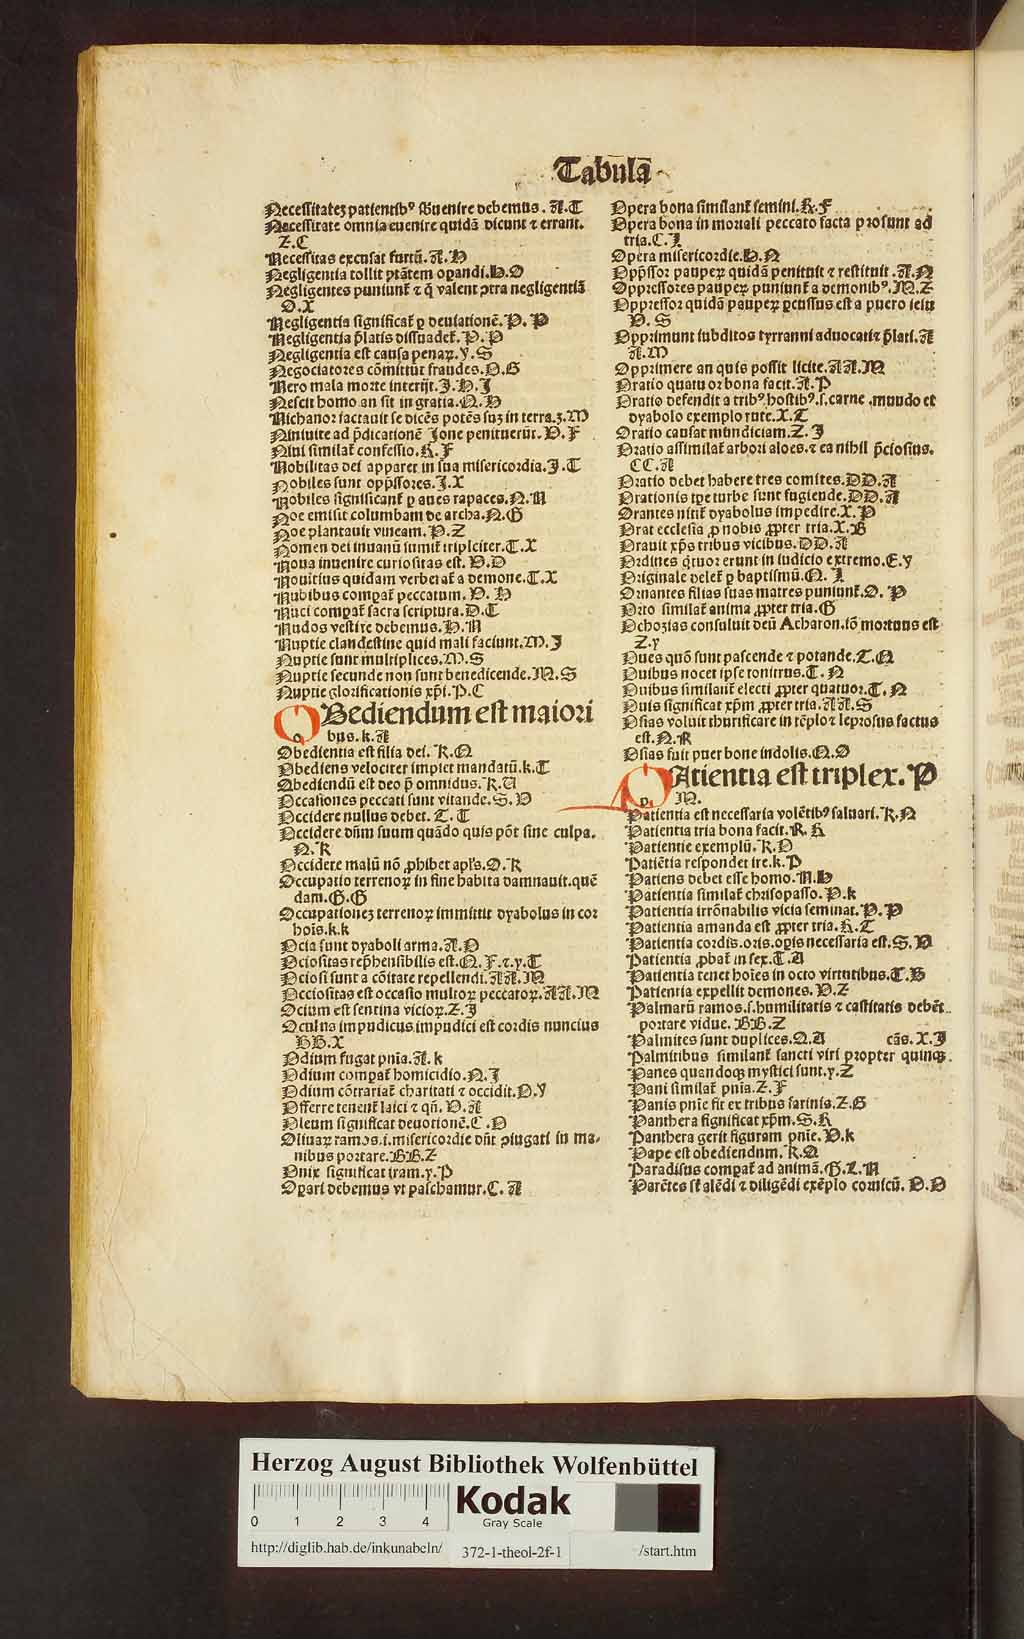 Tabula
Necessitatez patientibꝰ subuenire debemus. A.T
Necessitate omnia euenire quidā dicunt ⁊ errant.
Z.C
Necessitas excusat furtū. A.H
Negligentia tollit ptātem opandi.H.O
Negligentes puniunt̄ ⁊ q̄ valent ꝯtra negligentiā
O.X
Negligentia significat̄ ꝑ deuiationē.P.P
Negligentia p̄latis dissuadet̄.P.P
Negligentia est causa penaꝝ.y.S
Negociatores cōmittūt fraudes.D.G
Nero mala morte interijt.J.H.J
Nescit homo an sit in gratia.N.H
Nichanor iactauit se dicēs potēs suꝫ in terra.3.M
Niniuite ad p̄dicationē Jone penituerūt.P.F
Niui similat̄ confessio.K.F
Nobilitas dei apparet in sua misericordia.J.T
Nobiles sunt opp̄ssores.J.X
Nobiles significant̄ ꝑ aues rapaces.N.N
Noe emisit columbam de archa.N.G
Noe plantauit vineam.P.Z
Nomen dei inuanū sumit̄ tripliciter.T.X
Noua inuenire curiositas est.P.D
Nouitius quidam verberat̄ a demone.T.X
Nubibus compat̄ peccatum.P.H
Nuci compat̄ sacra scriptura.D.T
Nudos vestire debemus.H.N
Nuptie clandestine quid mali faciunt.M.J
Nuptie sunt multiplices.M.S
Nuptie secunde non sunt benedicende.M.S
Nuptie glorificationis xp̄i.P.C
OBediendum est maiori
bus.k.A
Obedientia est filia dei.K.Q
Obediens velociter implet mandatū.k.T
Obediendū est deo p̄ omnibus.K.U
Occasiones peccati sunt vitande.S.D
Occidere nullus debet.T.T
Occidere dn̄m suum quādo quis pōt sine culpa.
N.K
Occidere malū nō ꝓhibet apl̄s.O.K
Occupatio terrenoꝝ in fine habita damnauit.quē
dam.G.G
Occupationez terrenoꝝ immittit dyabolus in cor
hoīs.k.k
Ocia sunt dyaboli arma.A.D
Ociositas rep̄hensibilis est.Q.F.⁊.y.T
Ociosi sunt a cōitate repellendi.AA.M
Occiositas est occasio multoꝝ peccatoꝝ.AA.M
Ocium est sentina vicioꝝ.Z.J
Oculus impudicus impudici est cordis nuncius
BB.X
Odium fugat pn̄ia.A.k
Odium compat̄ homicidio.N.J
Odium cōtrariat̄ charitati ⁊ occidit.D.y
Offerre tenent̄ laici ⁊ qn̄.P.A
Oleum significat deuotionē.C.D
Oliuaꝝ ramos.i.misericordie dn̄t ꝯiugati in ma-
nibus portare.BB.Z
Onix significat iram.y.P
Opari debemus vt paschamur.C.A
Opera bona similant̄ semini.K.F
Opera bona in mortali peccato facta prosunt ad
tria.C.J
Opera misericordie.H.N
Opp̄ssor paupeꝝ quidā penituit ⁊ restituit.A.N
Oppressores paupeꝝ puniunt̄ a demonibꝰ.M.Z
Oppressor quidā paupeꝝ ꝑcussus est a puero iesu
P.S
Opprimunt subditos tyrranni aduocati⁊ p̄lati.A
A.M
Opprimere an quis possit licite.AA.M
Oratio quatuor bona facit.A.P
Oratio defendit a tribꝰ hostibꝰ.s.carne.mundo et
dyabolo exemplo rute.X.T
Oratio causat mundiciam.Z.J
Oratio assimilat̄ arbori aloes.⁊ ea nihil p̄ciosius.
CC.A
Oratio debet habere tres comites.DD.A
Orationis tꝑe turbe sunt fugiende.DD.A
Orantes nitit̄ dyabolus impedire.X.P
Orat ecclesia ꝓ nobis ꝓpter tria.X.B
Orauit xp̄s tribus vicibus.DD.A
Ordines q̄tuor erunt in iudicio extremo.E.y
Originale delet̄ ꝑ baptismū.Q.J
Ornantes filias suas matres puniunt̄.O.P
Orto similat̄ anima ꝓpter tria.G
Ochozias consuluit deū Acharon.iō mortuus est
Z.y
Oues quō sunt pascende ⁊ potande.T.Q
Ouibus nocet ipse tonitrus.T.N
Ouibus similant̄ electi ꝓpter quatuor.T.N
Ouis significat xp̄m ꝓpter tria.AA.S
Osias voluit thurificare in tēplo ⁊ leprosus factus
est.N.K
Osias fuit puer bone indolis.Q.O
PAtientia est triplex.P
M.
Patientia est necessaria volētibꝰ saluari.K.N
Patientia tria bona facit.K.K
Patientie exemplū.K.D
Patiētia respondet ire.k.P
Patiens debet esse homo.N.H
Patientia similat̄ chrisopasso.P.k
Patientia irrōnabilis vicia seminat.P.P
Patientia amanda est ꝓpter tria.K.T
Patientia cordis.oris.opis necessaria est.S.D
Patientia ꝓbat̄ in sex.T.A
Patientia tenet hoīes in octo virtutibus.T.B
Patientia expellit demones.P.Z
Palmarū ramos.s.humilitatis ⁊ castitatis debēt
portare vidue.BB.Z
Palmites sunt duplices.Q.A cās.X.J
Palmitibus similant̄ sancti viri propter quinqꝫ.
Panes quandoqꝫ mystici sunt.y.Z
Pani similat̄ pn̄ia.Z.F
Panis pn̄ie fit ex tribus farinis.Z.G
Panthera significat xp̄m.S.K
Panthera gerit figuram pn̄ie.P.k
Pape est obediendum.K.Q
Paradisus compat̄ ad animā.G.L.N
Parētes st̄ alēdi ⁊ diligēdi exēplo cornicū.D.D
Herzog August Bibliothek Wolfenbüttel
0 1 2 3 4
Kodak
Gray Scale
http://diglib.hab.de/inkunabeln/ 372-1-theol-2f-1 /start.htm